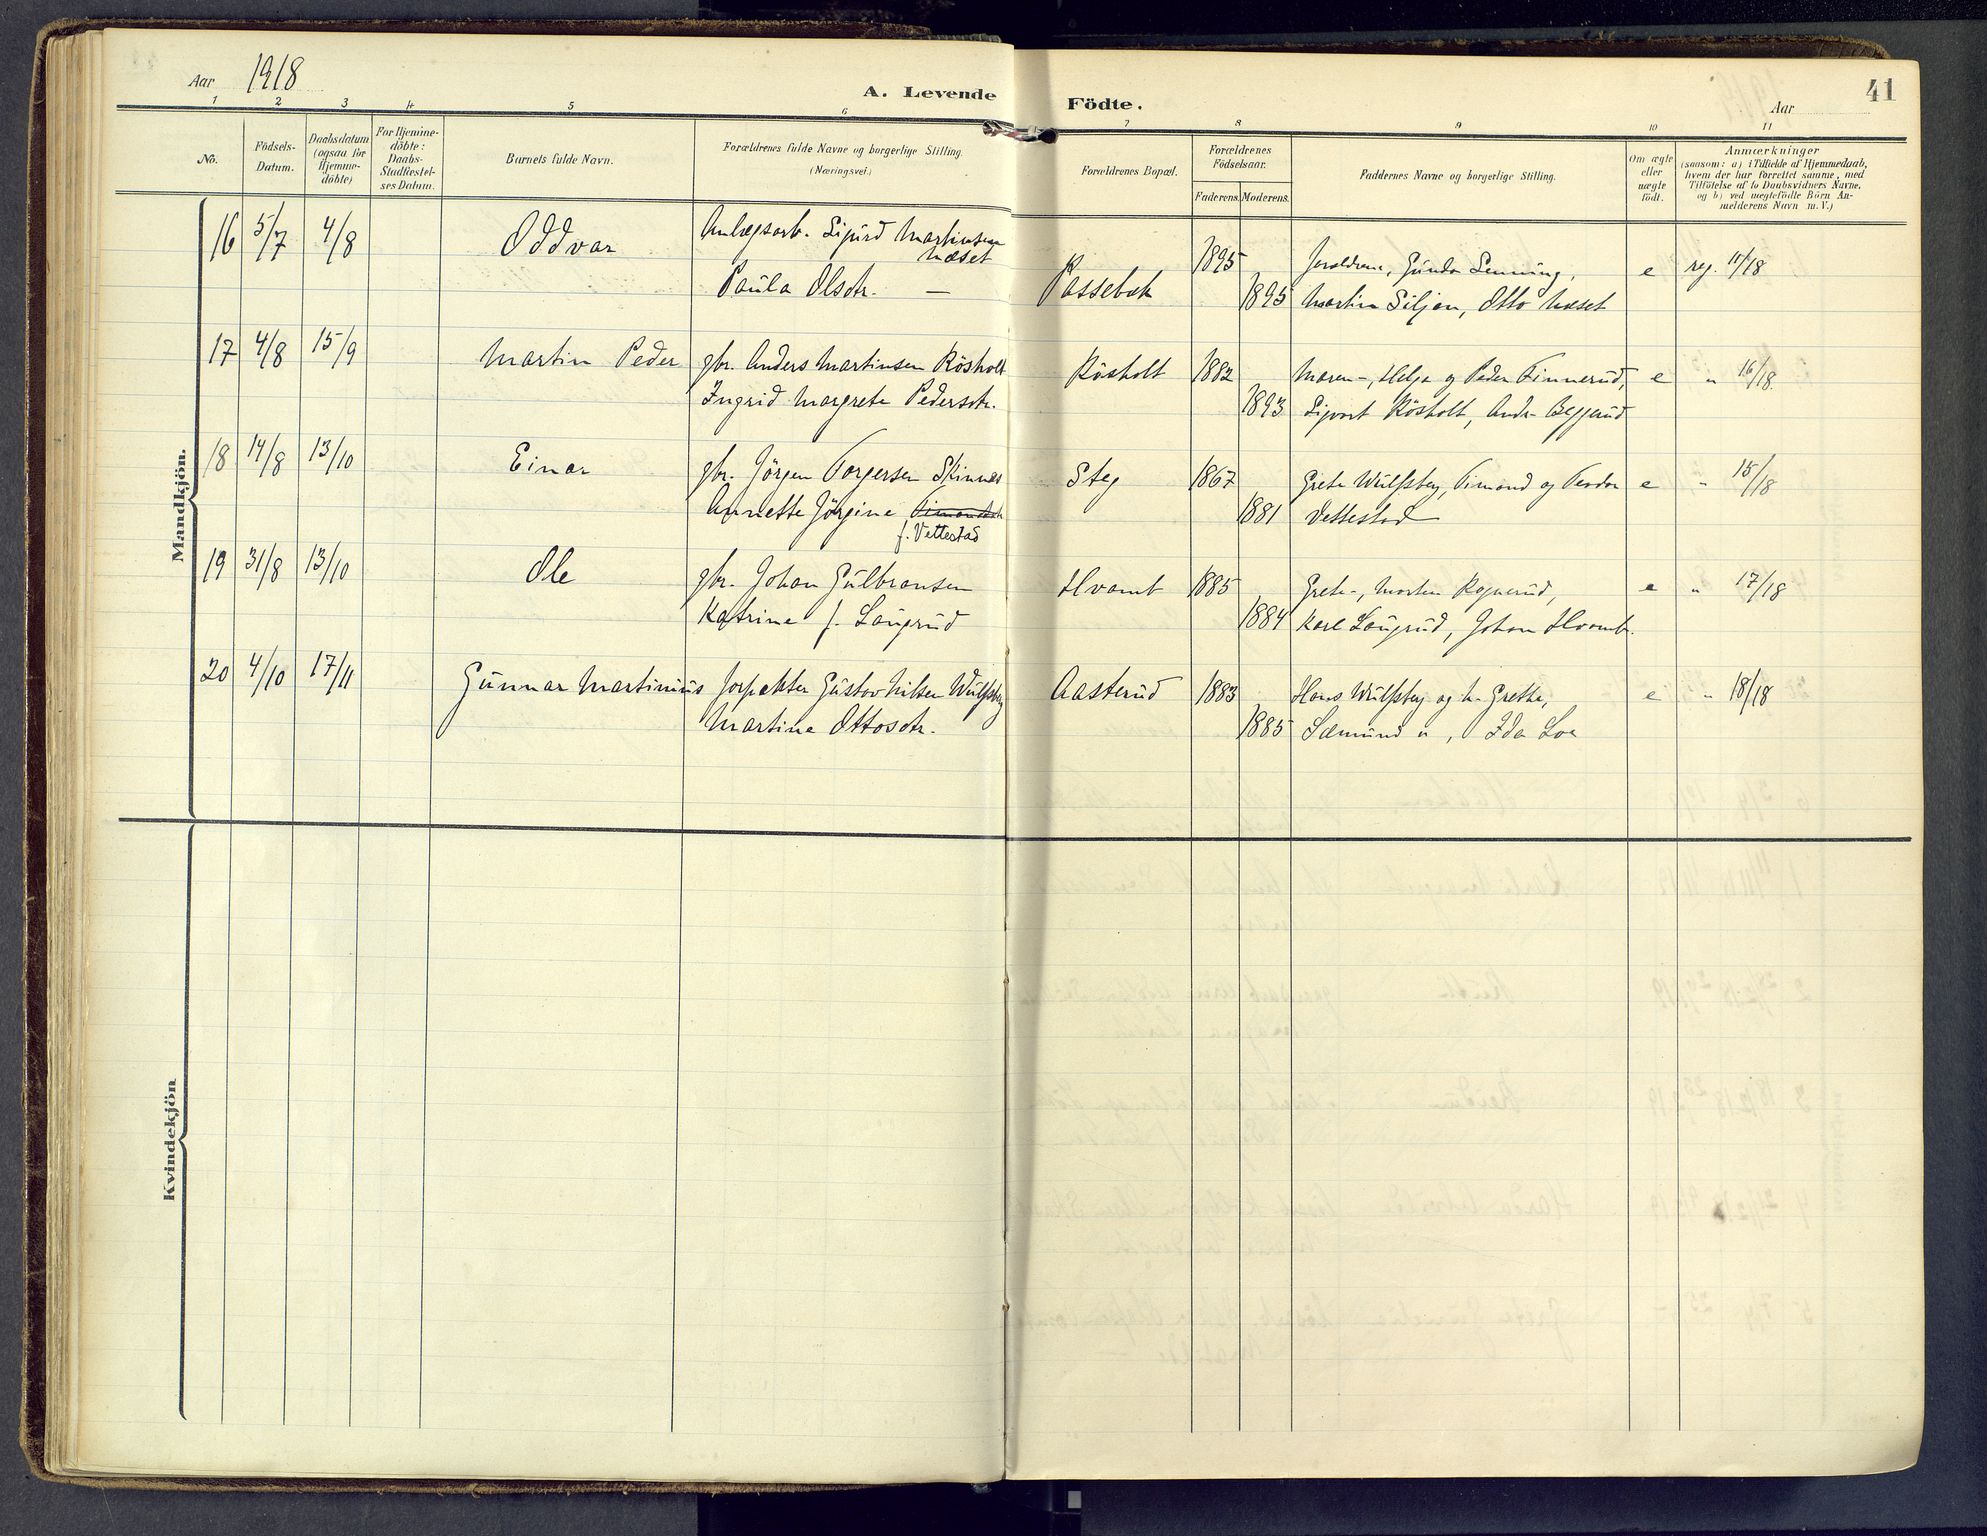 Aar 1918
A. Levende Födte.
Aar
41
1 2 3 4 5 6 7 8 9 10 11
No.
Födsels-
Datum.
Daabsdatum
(ogsaa for
Hjemme-
döbte)
For Hjemme-
döbte:
Daabs-
Stadfæstel-
ses Datum.
Barnets fulde Navn.
Forældrenes fulde Navne og borgerlige Stilling.
(Næringsvei.)
Forældrenes Bopæl.
Forældrenes
Födselsaar.
Faderens. Moderens.
Faddernes Navne og borgerlige Stilling.
Om ægte
eller
uægte
födt.
Anmærkninger
(saasom: a) i Tilfælde af Hjemmedaab,
hvem der har forrettet samme, med
Tilföielse af to Daabsvidners Navne,
og b) ved uægtefödte Börn An-
melderens Navn m. V.)
Mandkjön.
16 5/7 4/8 Oddvar Anlægsarb. Sigurd Martinsen
Næset
Paula Olsdtr. —
Passebæk 1895 Forældrene, Gunda Lenning, e reg. 11/18
1895 Martin Siljan, Otto Næset
17 4/8 15/9 Martin Peder gbr. Anders Martinsen Røsholt
Ingrid Margrete Pedersdtr.
Røsholt 1882 Maren-, Helga og Peder Finnerud, e " 16/18
1893 Sigvart Røsholt, Andr. Beggerud
18 14/8 13/10 Einar gbr. Jörgen Torgersen Skinnes
Annette Jörgine Timandsdtr
f. Vettestad
Steg 1867 Grete Wulfsberg, Timand og Teodor e " 15/18
1881 Vettestad
19 31/8 13/10 Ole gbr. Johan Gulbransen
Katrine f. Laugerud
Hvamb 1885 Grete-, Morten Rognerud, e " 17/18
1884 Karl Laugerud, Johan Hvamb.
20 4/10 17/11 Gunnar Martinius forpakter Gustav Nilsen Wulfsberg
Martine Ottosdtr.
Aasterud 1883 Hans Wulfsberg og h. Grethe, e " 18/18
1885 Sæmund ", Ida Loe
Kvindekjön